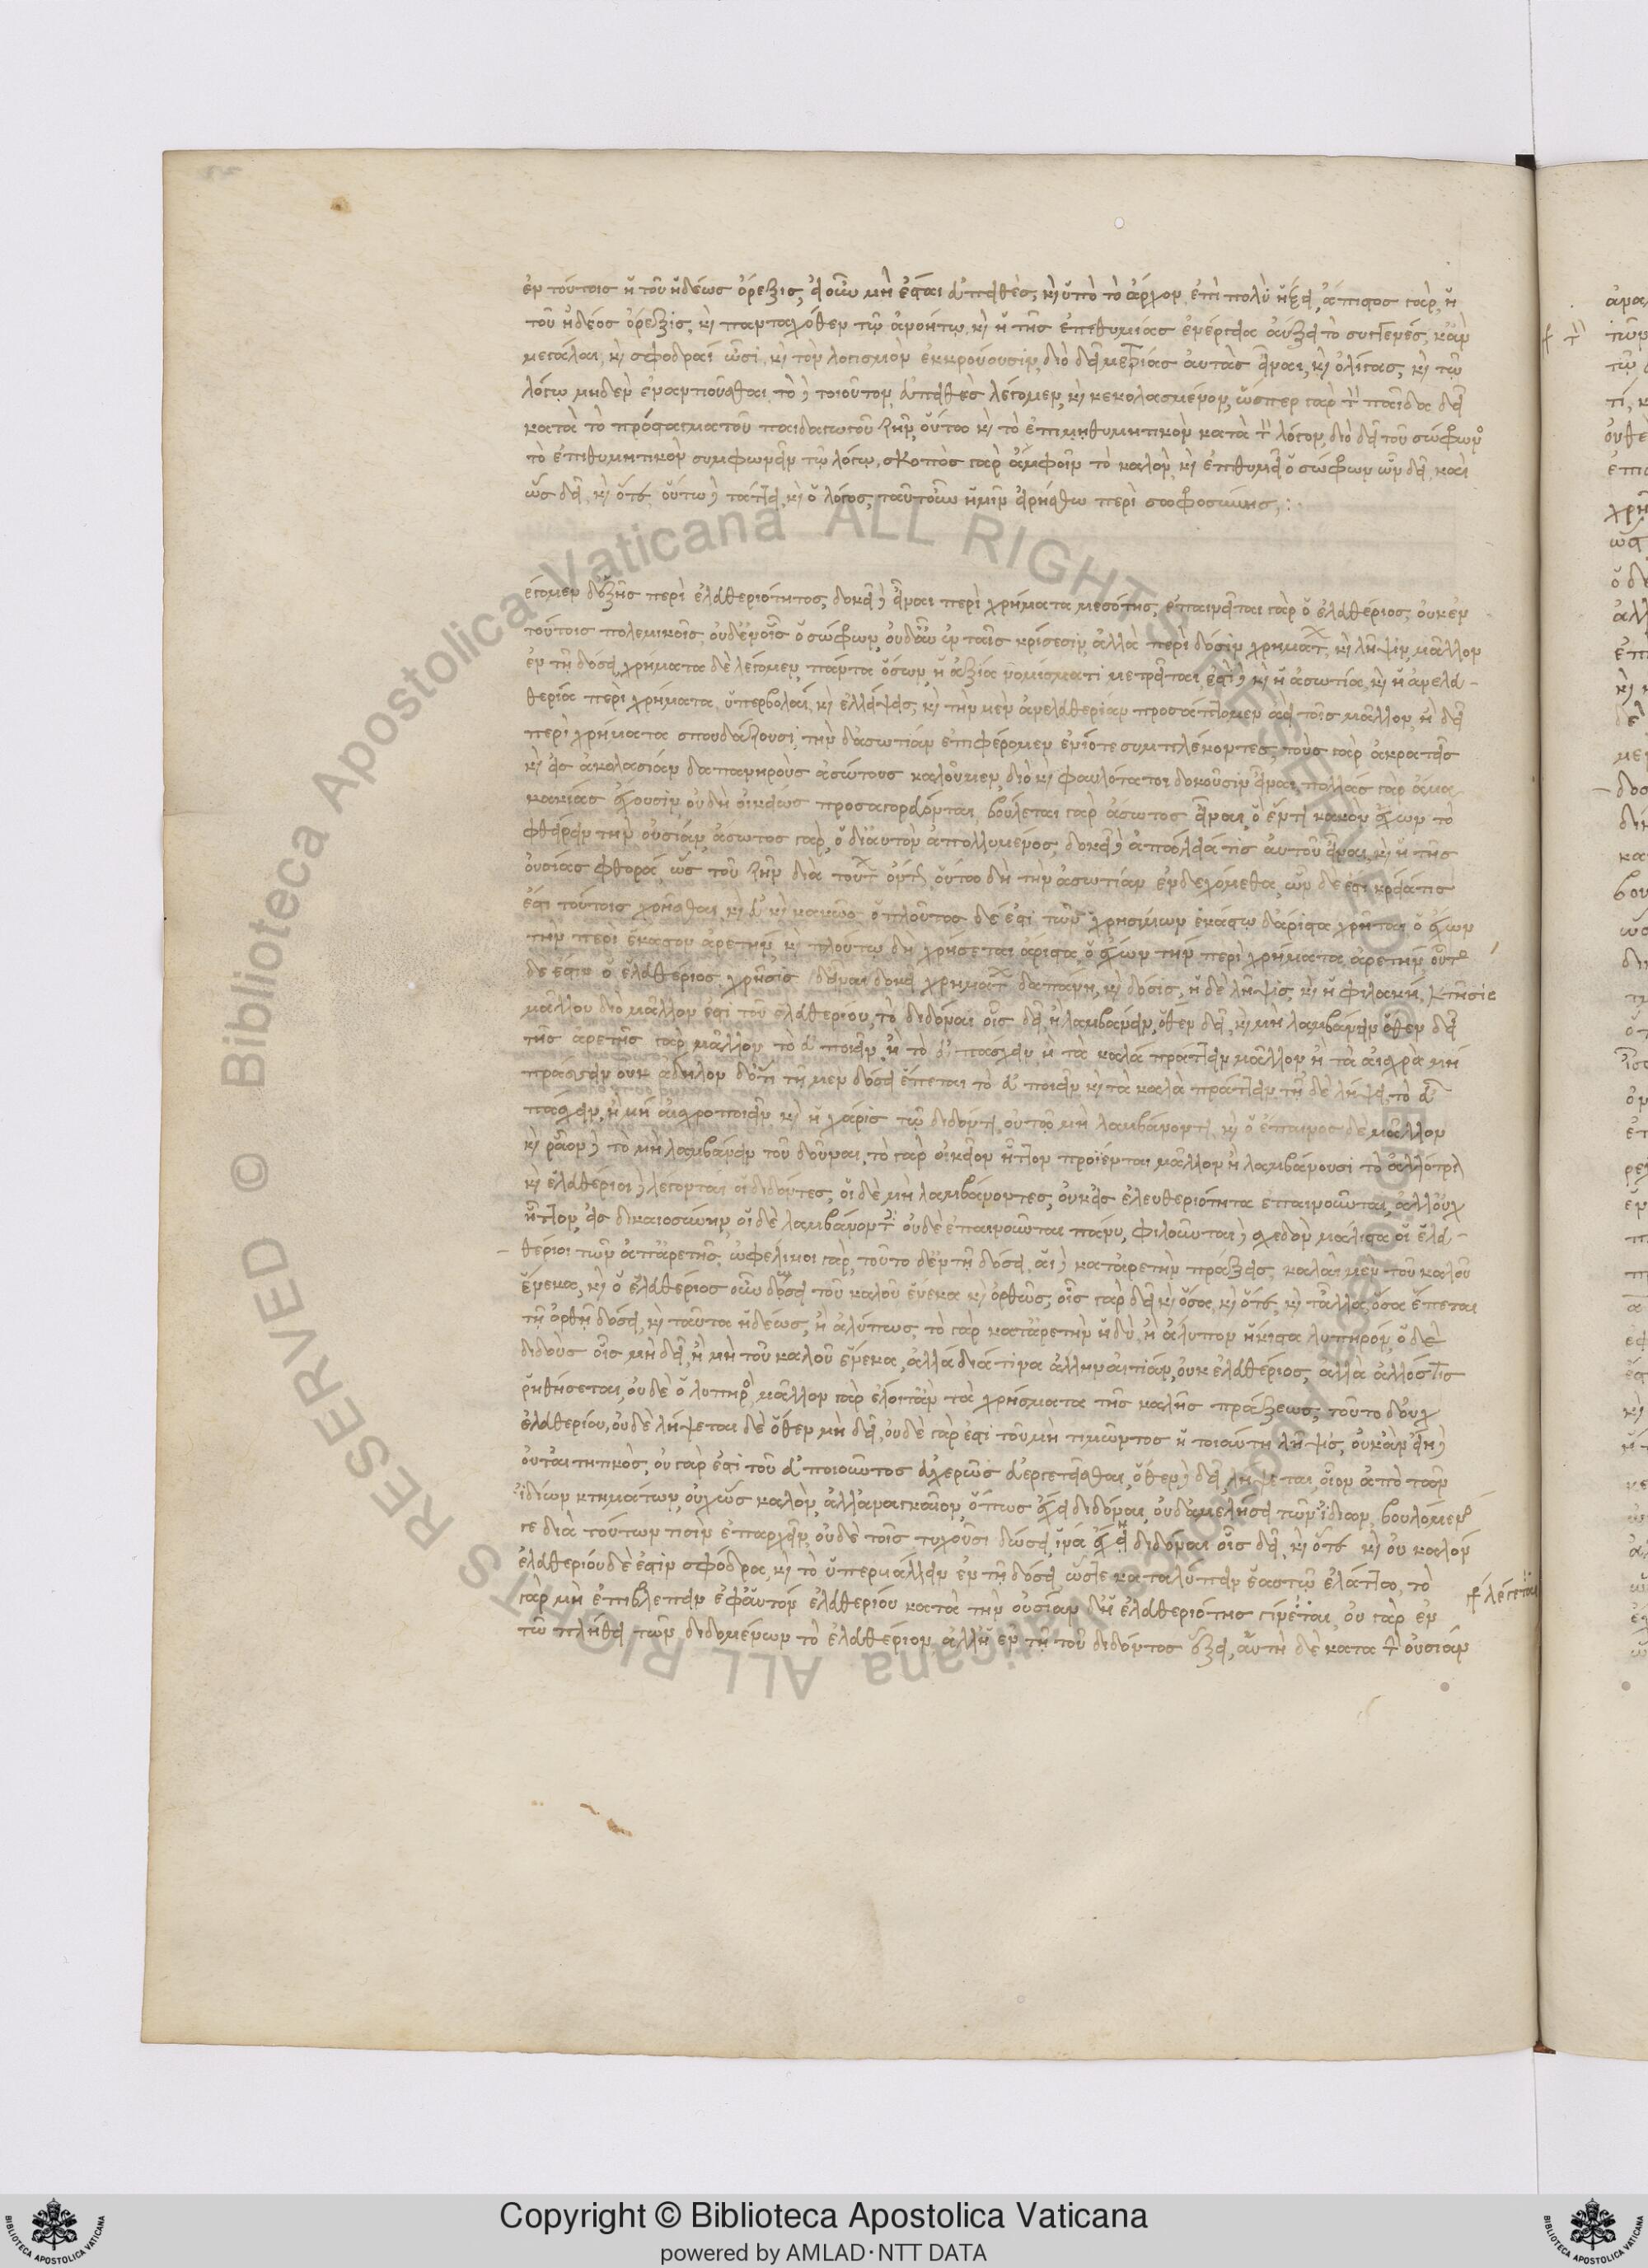 ἐν τούτοις ἡ τοῦ ἡδέως ὄρεξις, εἰ οὖν μὴ ἔσται εὐπειθὲς, καὶ ὑπὸ τὸ ἄρχον, ἐπὶ πολὺ ἥξει, ἄπιστος γὰρ, ἡ
τοῦ ἡδέος ὄρεξις, καὶ πανταχόθεν τῷ ἀνοήτῳ, καὶ ἡ τῆς ἐπιθυμίας ἐνέργεια αὔξει τὸ συγγενές, κἂν
μεγάλαι, καὶ σφοδραὶ ὦσι, καὶ τὸν λογισμὸν ἐκκρούουσιν, διὸ δεῖ μετρίας αὐτὰς εἶναι, καὶ ὀλίγας, καὶ τῷ
λόγῳ μηδὲν ἐναντιοῦσθαι, τὸ δὲ τοιοῦτον, εὐπειθὲς λέγομεν, καὶ κεκολασμένον, ὥσπερ γὰρ τὸν παῖδα δεῖ
κατὰ τὸ πρόσταγμα τοῦ παιδαγωγοῦ ζῆν, οὕτω καὶ τὸ ἐπιθυμητικὸν κατὰ τὸν λόγον, διὸ δεῖ τοῦ σώφρονος
τὸ ἐπιθυμητικὸν συμφωνεῖν τῷ λόγῳ, σκοπὸς γὰρ ἀμφοῖν τὸ καλὸν, καὶ ἐπιθυμεῖ ὁ σώφρων ὧν δεῖ, καὶ
ὡς δεῖ, καὶ ὅτε, οὕτω δὲ τάττει, καὶ ὁ λόγος, ταῦτ' οὖν ἡμῖν εἰρήσθω περὶ σωφροσύνης,:
έγομεν δ' ἑξῆς περὶ ἐλευθεριότητος, δοκεῖ δὲ εἶναι περὶ χρήματα μεσότης, ἐπαινεῖται γὰρ ὁ ἐλευθέριος, οὐκ ἐν
τούτοις πολεμικοῖς, οὐδ' ἐν οἷς ὁ σώφρων, οὐδ' αὖ ἐν ταῖς κρίσεσιν, ἀλλὰ περὶ δόσιν χρημάτων, καὶ λῆψιν, μᾶλλον
ἐν τῇ δόσει, χρήματα δὲ λέγομεν, πάντα ὅσων, ἡ ἀξία νομίσματι μετρεῖται, ἔστι δὲ καὶ ἡ ἀσωτία, καὶ ἡ ἀνελευ-
θερία περὶ χρήματα, ὑπερβολαὶ, καὶ ἐλλείψεις, καὶ τὴν μὲν ἀνελευθερίαν προσάπτομεν ἀεὶ τοῖς μᾶλλον, ἢ δεῖ
περὶ χρήματα σπουδάζουσι, τὴν δ' ἀσωτίαν ἐπιφέρομεν ἐνίοτε συμπλέκοντες, τοὺς γὰρ ἀκρατεῖς
καὶ εἰς ἀκολασίαν δαπανηροὺς ἀσώτους καλοῦμεν, διὸ καὶ φαυλότατοι δοκοῦσιν εἶναι, πολλὰς γὰρ ἅμα
κακίας ἔχουσιν, οὐ δὴ οἰκείως προσαγορεύονται, βούλεται γὰρ ἄσωτος εἶναι, ὁ ἕν τι κακὸν ἔχων τὸ
φθείρειν τὴν οὐσίαν, ἄσωτος γὰρ, ὁ δι' αὑτὸν ἀπολλύμενος, δοκεῖ δὲ ἀπώλειά τις αὐτοῦ εἶναι, καὶ ἡ τῆς
οὐσίας φθορά, ὡς τοῦ ζῆν διὰ τούτων ὄντος, οὕτω δὴ τὴν ἀσωτίαν ἐνδεχόμεθα, ὧν δέ ἐστι χρεία τις
ἔστι τούτοις χρῆσθαι, καὶ εὖ καὶ κακῶς, ὁ πλοῦτος δέ ἐστι τῶν χρησίμων, ἑκάστῳ δ' ἄριστα χρῆται, ὁ ἔχων
τὴν περὶ ἕκαστον ἀρετὴν, καὶ πλούτῳ δὴ χρήσεται ἄριστα, ὁ ἔχων τὴν περὶ χρήματα ἀρετὴν, οὗτος
δέ ἐστιν ὁ ἐλευθέριος, χρῆσις δ' εἶναι δοκεῖ χρημάτων δαπάνη, καὶ δόσις, ἡ δὲ λῆψις, καὶ ἡ φυλακὴ, κτῆσις
μᾶλλον διὸ μᾶλλον ἐστὶ τοῦ ἐλευθερίου, τὸ διδόναι οἷς δεῖ, ἢ λαμβάνειν, ὅθεν δεῖ, καὶ μὴ λαμβάνειν ὅθεν δεῖ
τῆς ἀρετῆς γὰρ μᾶλλον τὸ εὖ ποιεῖν, ἢ τὸ εὖ πάσχειν, ἢ τὰ καλὰ πράττειν μᾶλλον ἢ τὰ αἰσχρὰ μὴ
πράσσειν οὐκ ἄδηλον δ' ὅτι τῇ μὲν δόσει ἕπεται τὸ εὖ ποιεῖν καὶ τὰ καλὰ πράττειν τῇ δὲ λήψει, τὸ εὖ
πάσχειν, ἢ μὴ αἰσχροποιεῖν, καὶ ἡ χάρις τῷ διδόντι, οὐ τῷ μὴ λαμβάνοντι, καὶ ὁ ἔπαινος δὲ μᾶλλον
καὶ ῥᾷον δὲ τὸ μὴ λαμβάνειν τοῦ δοῦναι, τὸ γὰρ οἰκεῖον ἧττον προΐενται μᾶλλον ἢ λαμβάνουσι τὸ ἀλλότριον
καὶ ἐλευθέριοι δὲ λέγονται οἱ διδόντες, οἱ δὲ μὴ λαμβάνοντες, οὐκ εἰς ἐλευθεριότητα ἐπαινοῦνται, ἀλλ' οὐχ
ἧττον, εἰς δικαιοσύνην, οἱ δὲ λαμβάνοντες οὐδὲ ἐπαινοῦνται πάνυ, φιλοῦνται δὲ σχεδὸν μάλιστα οἱ ἐλευ-
θέριοι τῶν ἀπ' ἀρετῆς, ὠφέλιμοι γὰρ, τοῦτο δ' ἐν τῇ δόσει, αἱ δὲ κατ' ἀρετὴν πράξεις, καλαὶ μὲν τοῦ καλοῦ
ἕνεκα, καὶ ὁ ἐλευθέριος οὖν δώσει τοῦ καλοῦ ἕνεκα καὶ ὀρθῶς, οἷς γὰρ δεῖ καὶ ὅσα, καὶ ὅτε, καὶ τἆλλα, ὅσα ἕπεται
τῇ ὀρθῇ δόσει, καὶ ταῦτα ἡδέως, ἢ ἀλύπως, τὸ γὰρ κατ' ἀρετὴν ἡδὺ, ἢ ἄλυπον ἥκιστα λυπηρόν, ὁ δὲ
διδοὺς οἷς μὴ δεῖ, ἢ μὴ τοῦ καλοῦ ἕνεκα, ἀλλὰ διά τινα ἄλλην αἰτίαν, οὐκ ἐλευθέριος, ἀλλὰ ἄλλος τις
ῥηθήσεται, οὐδὲ ὁ λυπηρῶς, μᾶλλον γὰρ ἕλοιτ' ἂν τὰ χρήσματα τῆς καλῆς πράξεως, τοῦτο δ' οὐχ
ἐλευθερίου, οὐδὲ λήψεται δὲ ὅθεν μὴ δεῖ, οὐδὲ γάρ ἐστι τοῦ μὴ τιμῶντος ἡ τοιαύτη λῆψις, οὐκ ἂν εἴη δὲ
οὐδ' αἰτητικὸς, οὐ γάρ ἐστι τοῦ εὖ ποιοῦντος εὐχερῶς εὐεργετεῖσθαι, ὅθεν δὲ δεῖ, λήψεται, οἷον ἀπὸ τῶν
ἰδίων κτημάτων, οὐχ ὡς καλὸν, ἀλλ' ἀναγκαῖον, ὅπως ἔχῃ διδόναι, οὐδ' ἀμελήσει τῶν ἰδίων, βουλόμενος
γε διὰ τούτων τισὶν ἐπαρκεῖν, οὐδὲ τοῖς τυχοῦσι δώσει, ἵνα ἔχῃ διδόναι οἷς δεῖ, καὶ ὅτε καὶ οὗ καλόν
ἐλευθερίου δέ ἐστιν σφόδρα, καὶ τὸ ὑπερβάλλειν ἐν τῇ δόσει, ὥστε καταλείπειν ἑαυτῷ ἐλάττω, τὸ
γὰρ μὴ ἐπιβλέπειν ἐφ' ἑαυτὸν ἐλευθερίου κατὰ τὴν οὐσίαν δ' ἡ ἐλευθεριότης γίνεται, οὐ γὰρ ἐν
λέγεται
τῷ πλήθει τῶν διδομένων τὸ ἐλευθέριον, ἀλλ' ἢ ἐν τῇ τοῦ διδόντος ἕξει, αὕτη δὲ κατὰ τὴν οὐσίαν
Copyright © Biblioteca Apostolica Vaticana
powered by AMLAD·NTT DATA